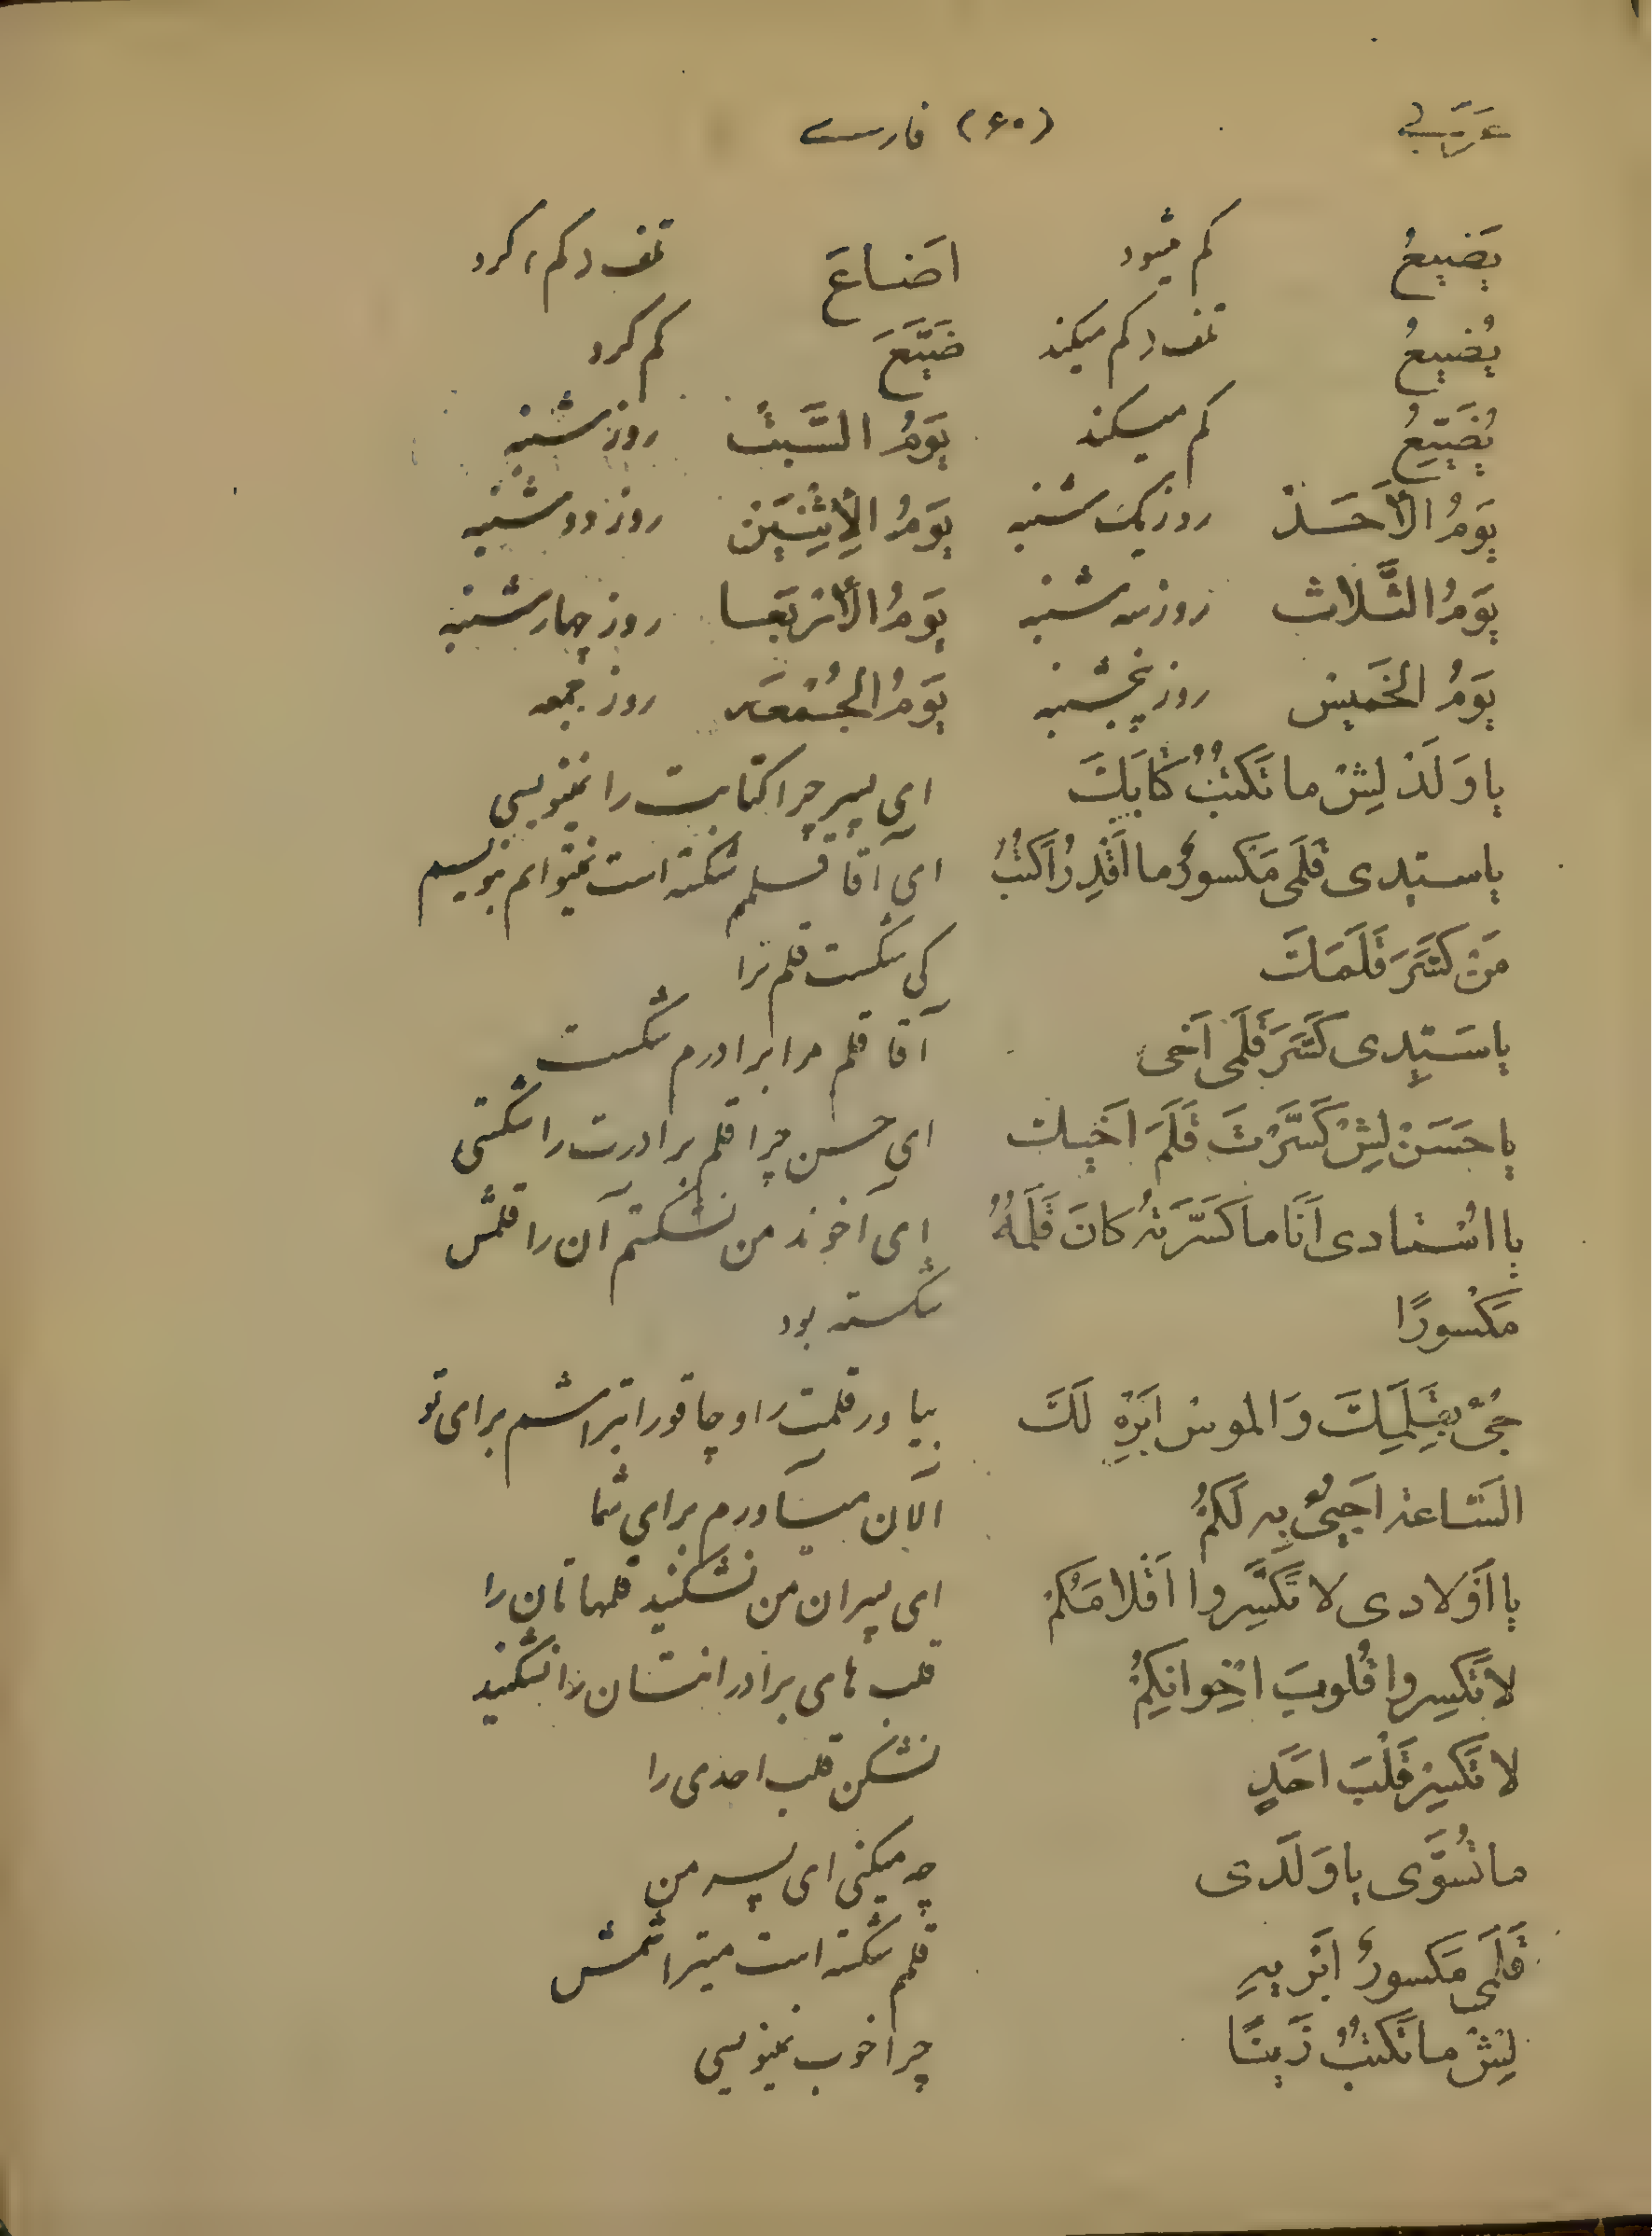 عَرَبی (۶۰) فارسے
یَضیعُ کم میشود اَضاعَ تلف و کم، کرد
یُضیعُ تلف و کم میکند ضَیَّعَ کم کرد
یُضَیِّعُ کم میکند یَومُ السَّبتْ روز شنبه
یَومُ الأَحَدْ روز یک شنبه یَومُ الإثنَینْ روز دو شنبه
یَومُ الثَّلاث روز سه شنبه یَومُ الأَربَعا روز چهار شنبه
یَومُ الخَمیسْ روز پنجشنبه یَومُ الجُمْعَه روز جمعه
یا وَلَدْ لِیشْ ما تَکتُبُ کتابَكَ ای پسر چرا کتابت را نمینویسی
یا سیّدی قَلَمی مَکسورٌ ما اَقدِرُ اَکتُبُ ای آقا قلمم شکسته است نمیتوانم بنویسم
مَنْ کَسَّرَ قَلَمَكَ کی شکست قلم ترا
یا سَیِّدی کَسَّرَ قَلَمی اَخی آقا قلم مرا برادرم شکست
یا حَسَنْ لِیشْ کَسَّرْتَ قَلَمَ اَخیك ای حسن چرا قلم برادرت را شکستی
یا اُستادی اَنَا ما کَسَّرتَهُ کانَ قَلَمُهُ ای آخوند من نشکستم آن را قلمش
مَکْسورًا شکسته بود
جُئْ بِقَلَمِكَ وَ الموس اَبرِهِ لَكَ بیاور قلمت را و چاقو را بتراشم برای تو
السّاعة اَجیئُ بِه لَکُمْ الآن میآورم برای شما
یا اَوْلادی لا تُکَسِّروا اَقلامَکُمْ ای پسران من نشکنید قلمهاتان را
لا تَکسِروا قُلوبَ اِخْوانِکُمْ قلب های برادرانتان را نشکنید
لا تَکسِرْ قَلْبَ اَحَدٍ نشکن قلب احدی را
ما تُسَوّی یا وَلَدی چه میکنی ای پسر من
قَلَمی مَکسورٌ اَبریهِ قلمم شکسته است میتراشمش
لِیشْ ما تَکتُبُ زَینًا چرا خوب نمینویسی